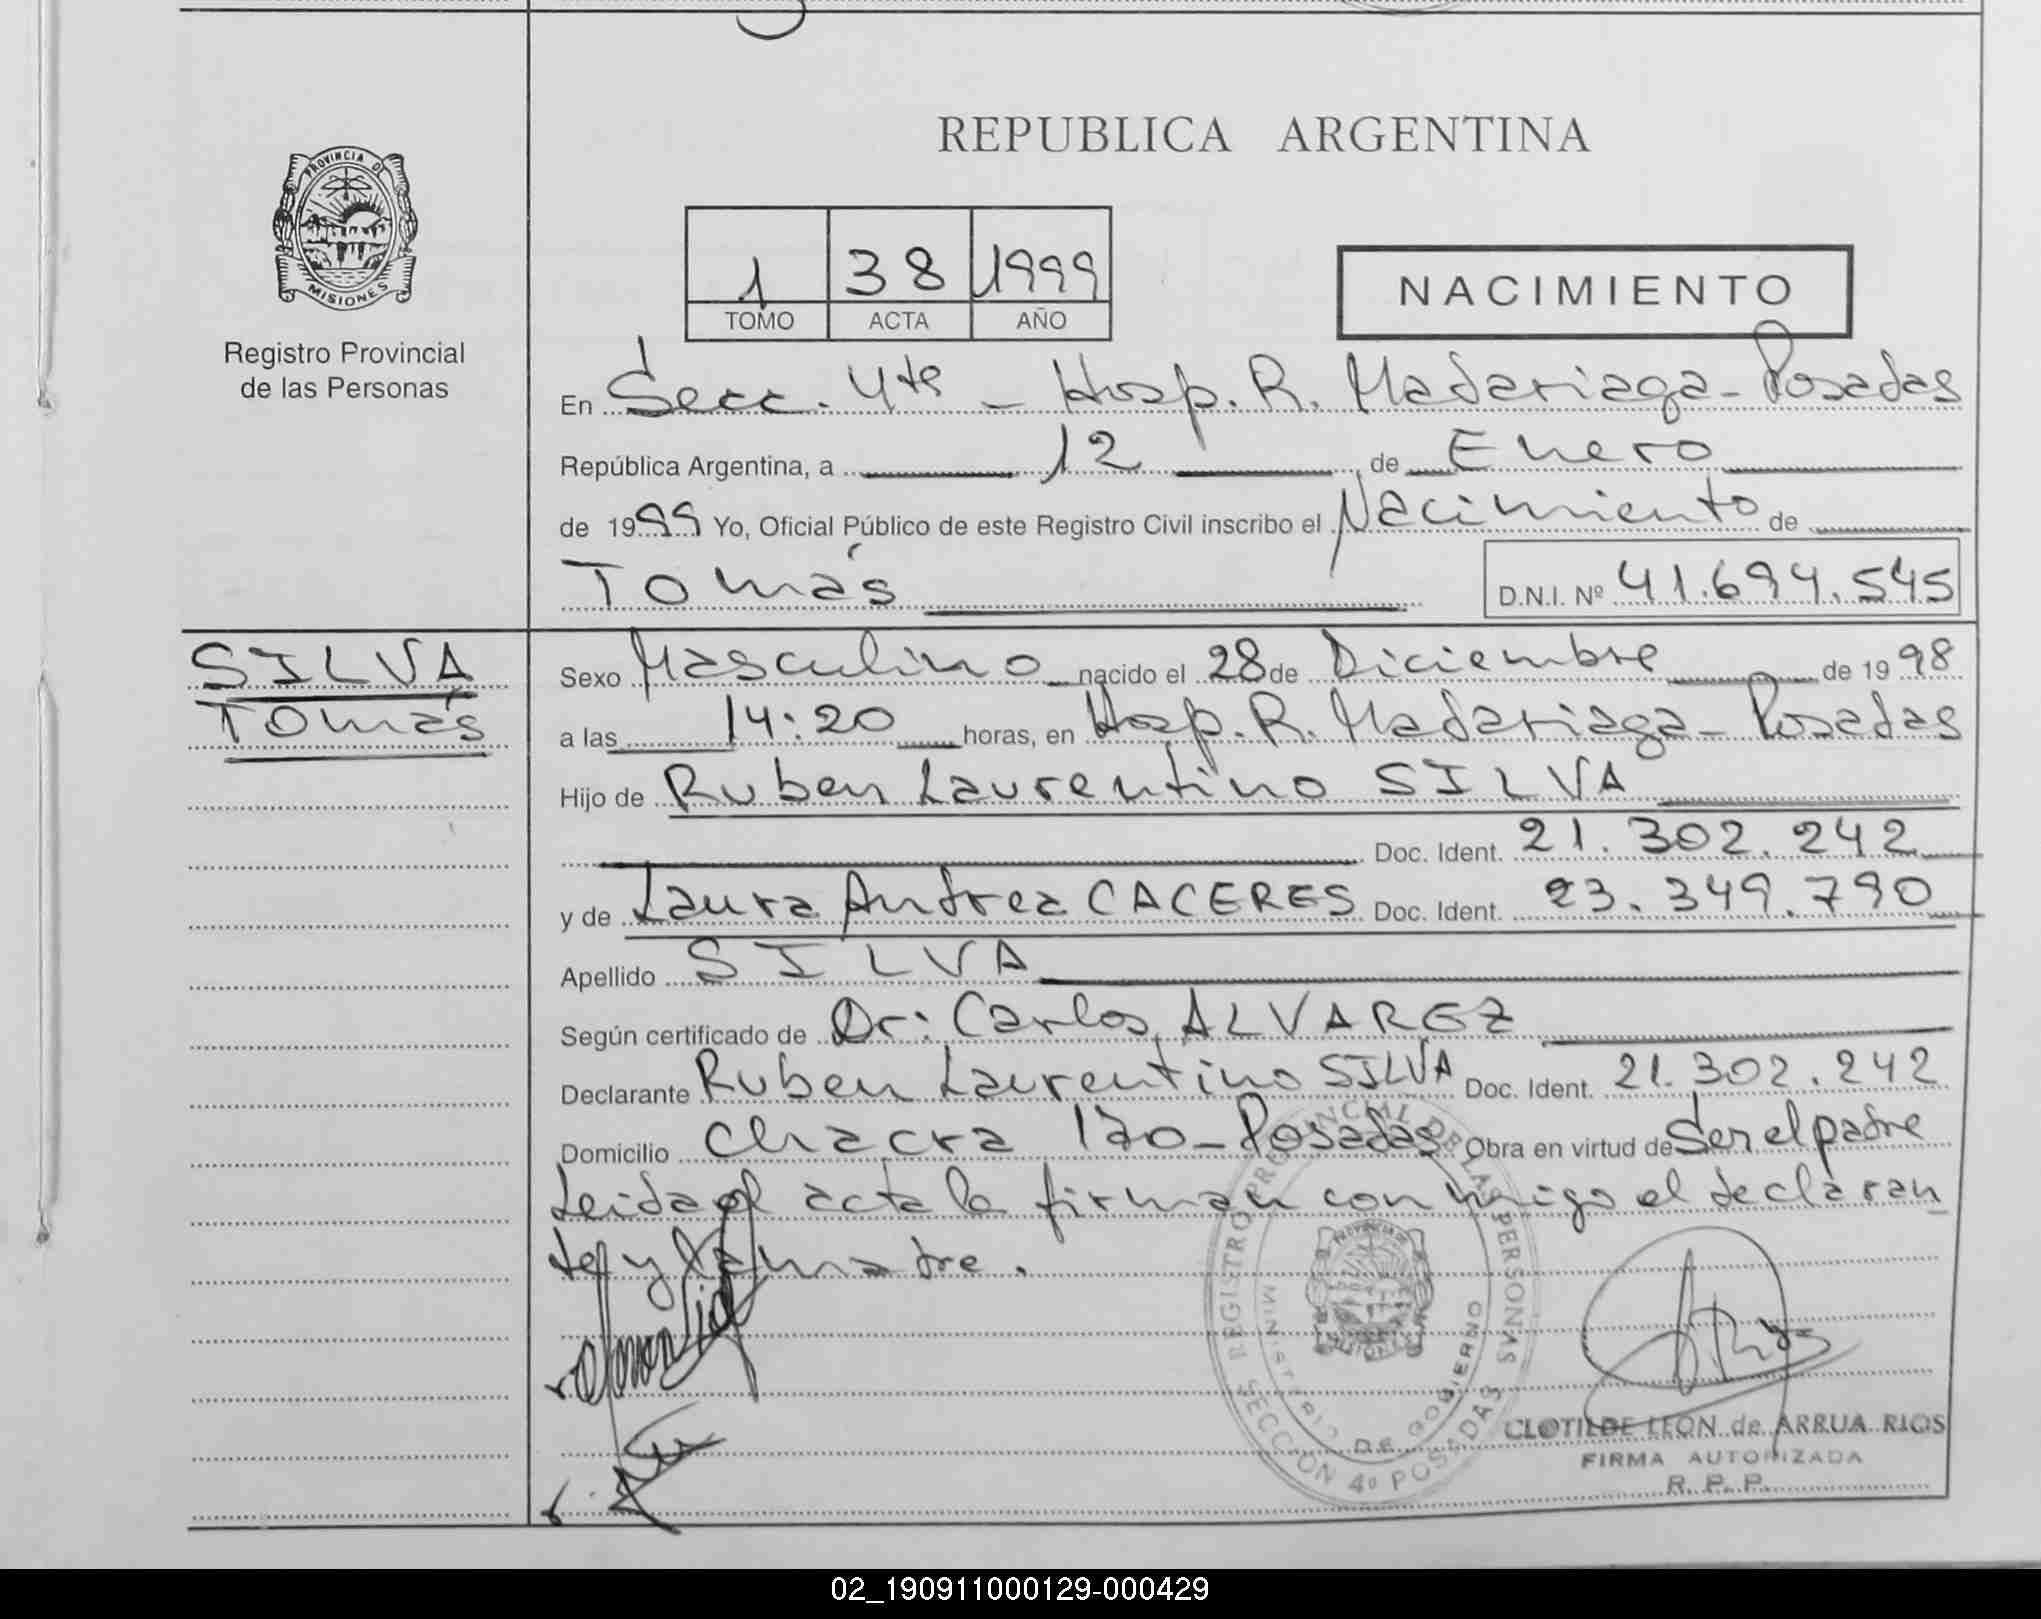 REPUBLICA ARGENTINA
PROVINCIA DE
MISIONES
Registro Provincial
de las Personas
1 38 1999
TOMO ACTA AÑO
NACIMIENTO
En Secc. 4ta - Hosp. R. Madariaga - Posadas
República Argentina, a 12 de Enero
de 1999 Yo, Oficial Público de este Registro Civil inscribo el Nacimiento de
Tomás D.N.I. Nº 41.694.545
SILVA
Tomás
Sexo Masculino nacido el 28 de Diciembre de 1998
a las 14:20 horas, en Hosp. R. Madariaga - Posadas
Hijo de Ruben Laurentino SILVA
Doc. Ident. 21.302.242
y de Laura Andrea CACERES Doc. Ident. 23.349.790
Apellido SILVA
Según certificado de Dr: Carlos ALVAREZ
Declarante Ruben Laurentino SILVA Doc. Ident. 21.302.242
Domicilio Chacra 120 - Posadas Obra en virtud de Ser el padre
Leida el acta la firman conmigo el declaran
te y la madre.
REGISTRO PROVINCIAL DE LAS PERSONAS
MINISTERIO DE GOBIERNO
SECCION 4º POSADAS
CLOTILDE LEON de ARRUA RIOS
FIRMA AUTORIZADA
R. P. P.
02_190911000129-000429